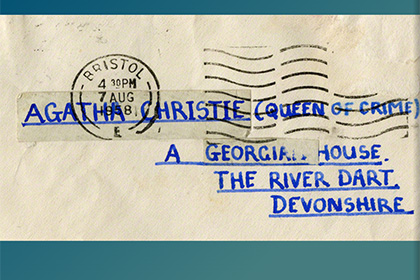 BRISTOL
4 30PM
7 AUG
1958
E
AGATHA CHRISTIE (QUEEN OF CRIME)
A GEORGIAN HOUSE.
THE RIVER DART.
DEVONSHIRE.